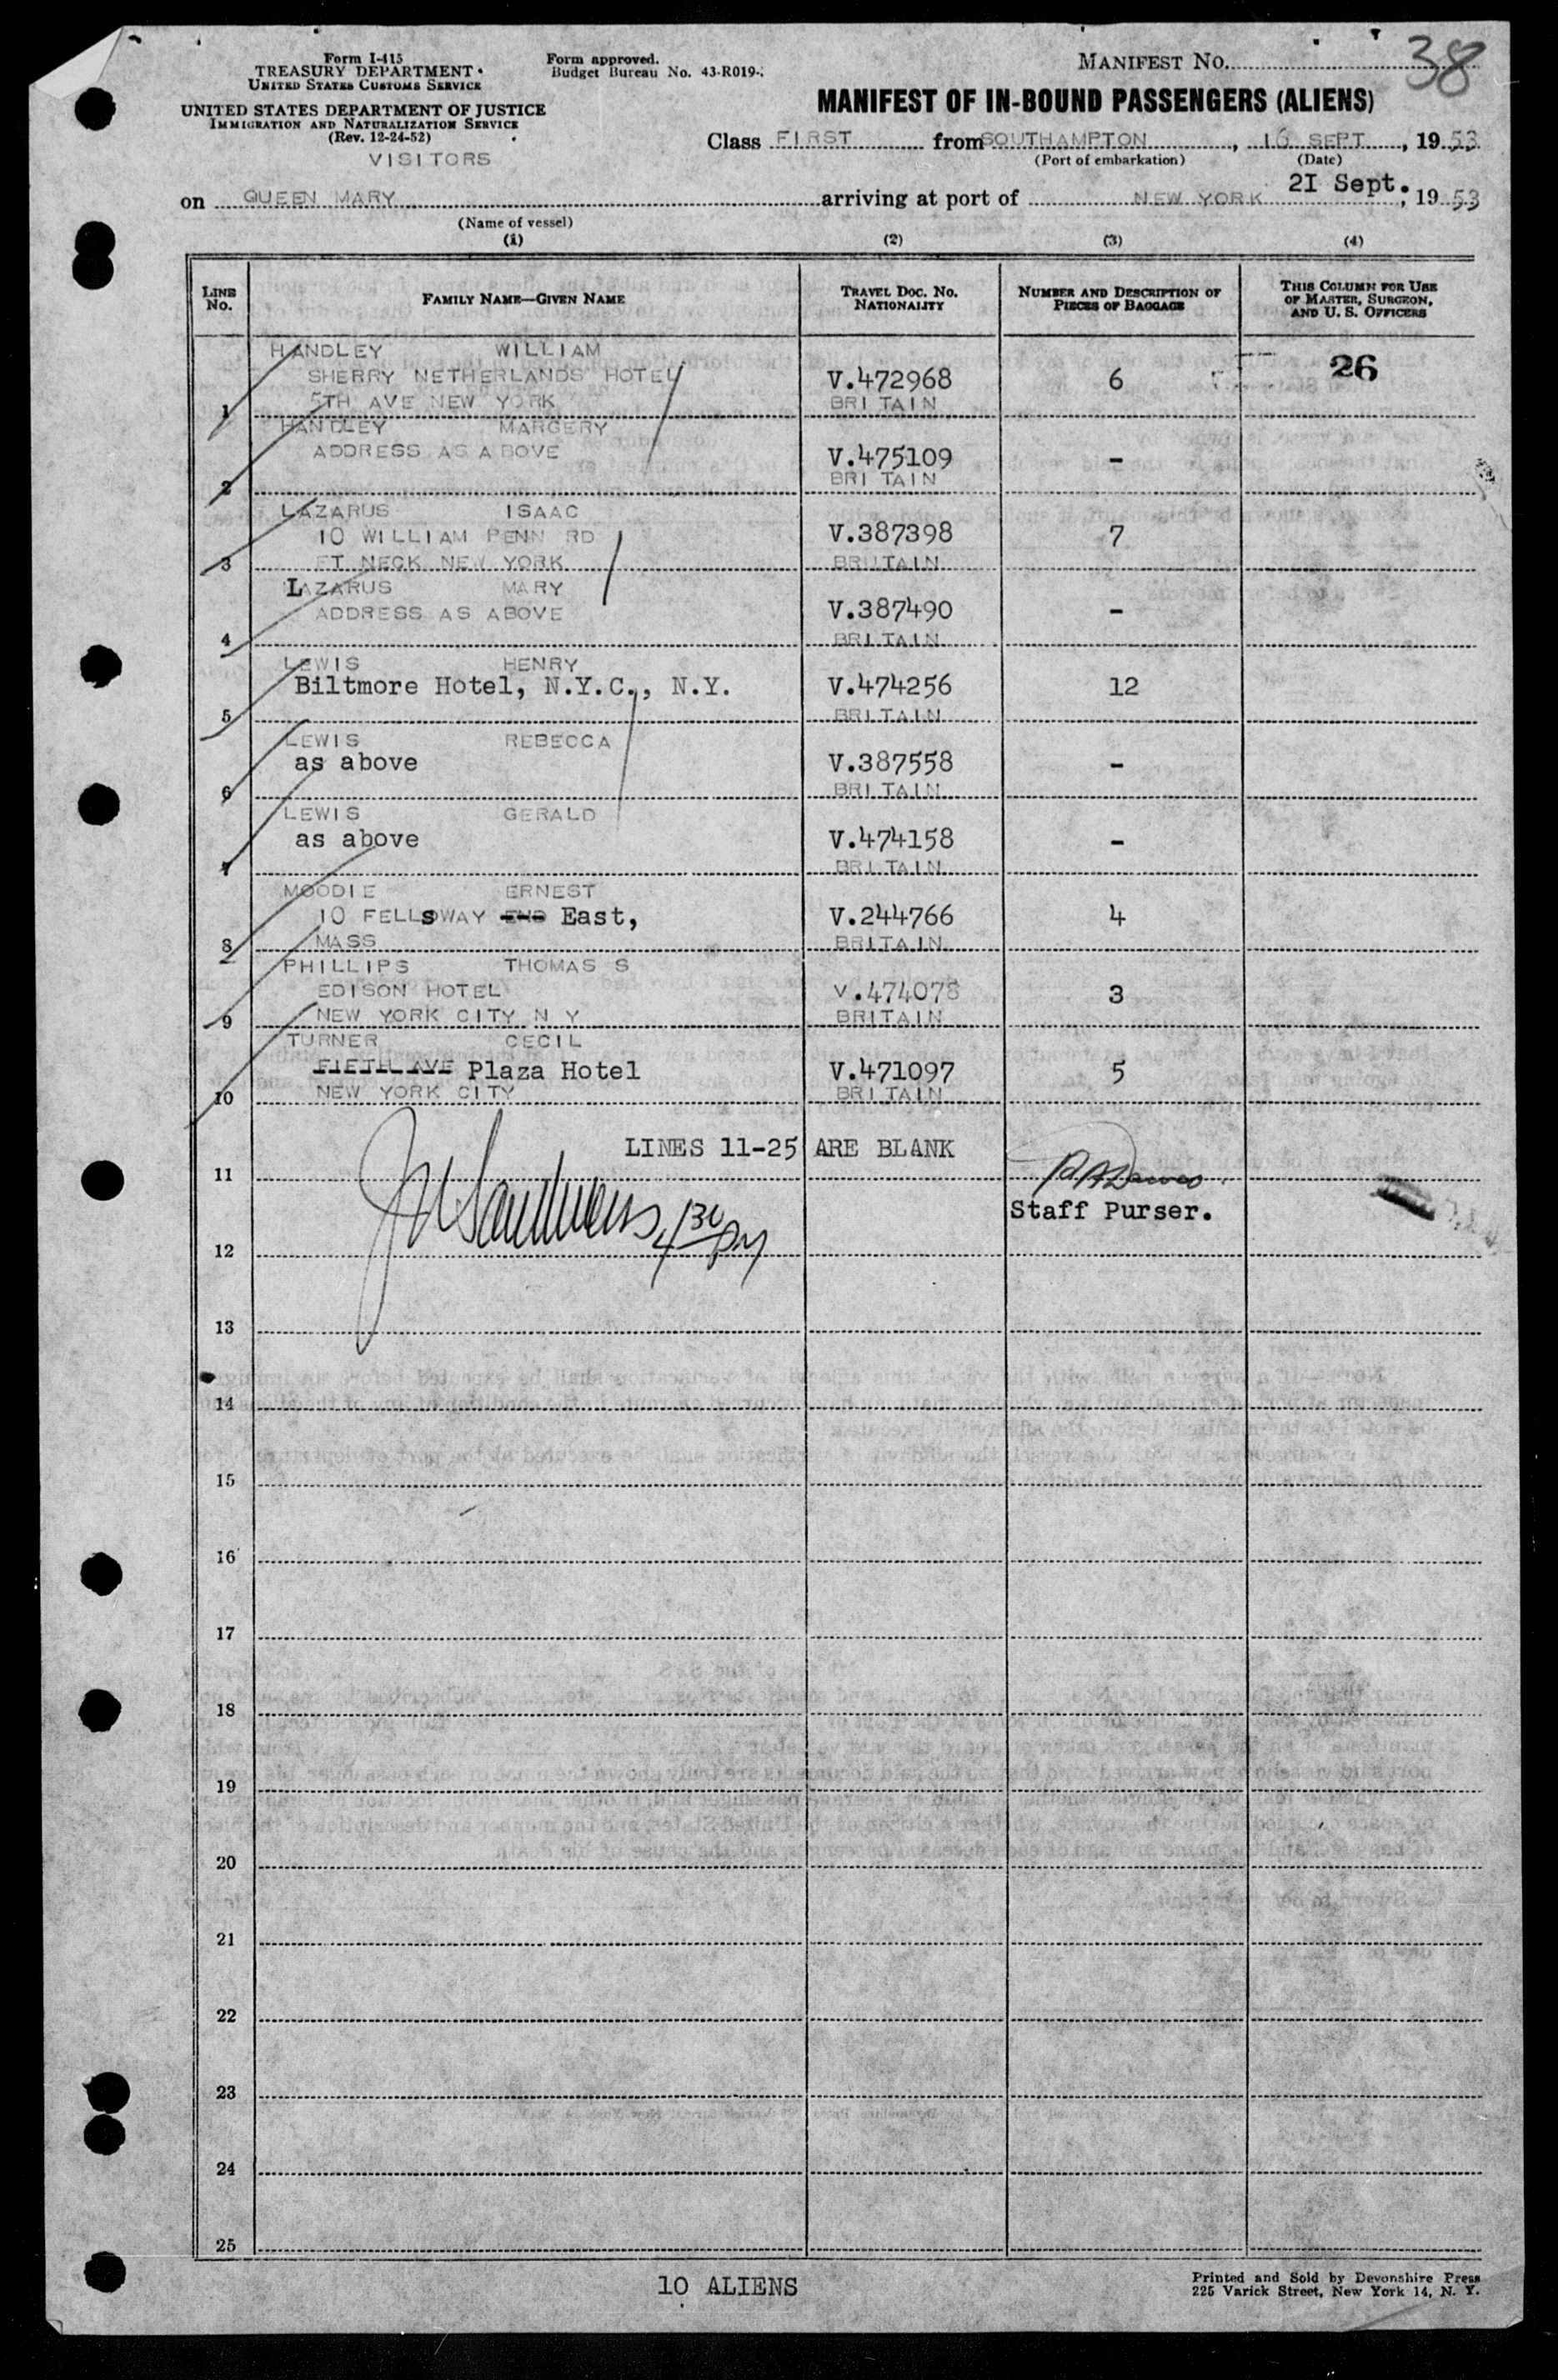 Form I-415
TREASURY DEPARTMENT
UNITED STATES CUSTOMS SERVICE
Form approved.
Budget Bureau No. 43-R019-
MANIFEST NO. 38
UNITED STATES DEPARTMENT OF JUSTICE
IMMIGRATION AND NATURALIZATION SERVICE
(Rev. 12-24-52)
VISITORS
MANIFEST OF IN-BOUND PASSENGERS (ALIENS)
Class FIRST from SOUTHAMPTON, 16 SEPT, 1953
(Port of embarkation) (Date)
on QUEEN MARY arriving at port of NEW YORK 21 Sept., 1953
(Name of vessel)
(1) (2) (3) (4)
LINE No. FAMILY NAME—GIVEN NAME TRAVEL DOC. NO. NATIONALITY NUMBER AND DESCRIPTION OF PIECES OF BAGGAGE THIS COLUMN FOR USE OF MASTER, SURGEON, AND U. S. OFFICERS
HANDLEY WILLIAM
SHERRY NETHERLANDS HOTEL V.472968 6 26
1 5TH AVE NEW YORK BRITAIN
HANDLEY MARGERY
ADDRESS AS ABOVE V.475109 -
2 BRITAIN
LAZARUS ISAAC
10 WILLIAM PENN RD V.387398 7
3 ET NECK NEW YORK BRITAIN
LAZARUS MARY
ADDRESS AS ABOVE V.387490 -
4 BRITAIN
LEWIS HENRY
Biltmore Hotel, N.Y.C., N.Y. V.474256 12
5 BRITAIN
LEWIS REBECCA
as above V.387558 -
6 BRITAIN
LEWIS GERALD
as above V.474158 -
7 BRITAIN
MOODIE ERNEST
10 FELLSWAY END East, V.244766 4
8 MASS BRITAIN
PHILLIPS THOMAS S
EDISON HOTEL V.474078 3
9 NEW YORK CITY N Y BRITAIN
TURNER CECIL
FIFTH AVE Plaza Hotel V.471097 5
10 NEW YORK CITY BRITAIN
LINES 11-25 ARE BLANK
11
Staff Purser.
4 30 PM
12
13
14
15
16
17
18
19
20
21
22
23
24
25
10 ALIENS
Printed and Sold by Devonshire Press
225 Varick Street, New York 14, N. Y.